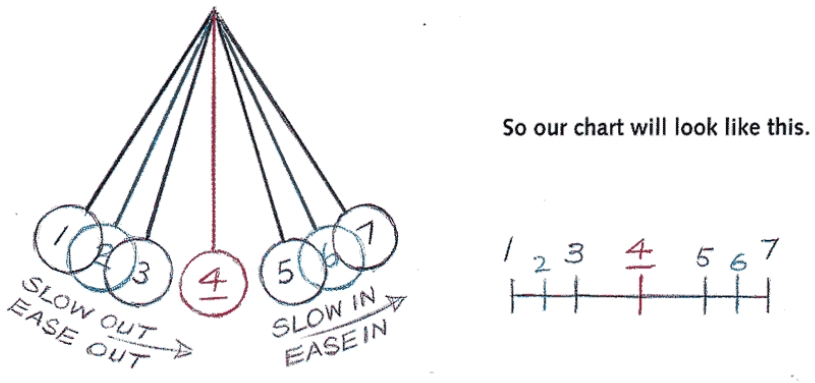 1 2 3 4 5 6 7
SLOW OUT
EASE OUT
SLOW IN
EASE IN
So our chart will look like this.
1 2 3 4 5 6 7